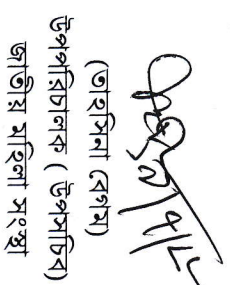 (তাহমিনা বেগম)
উপপরিচালক ( উপসচিব)
জাতীয় মহিলা সংস্থা